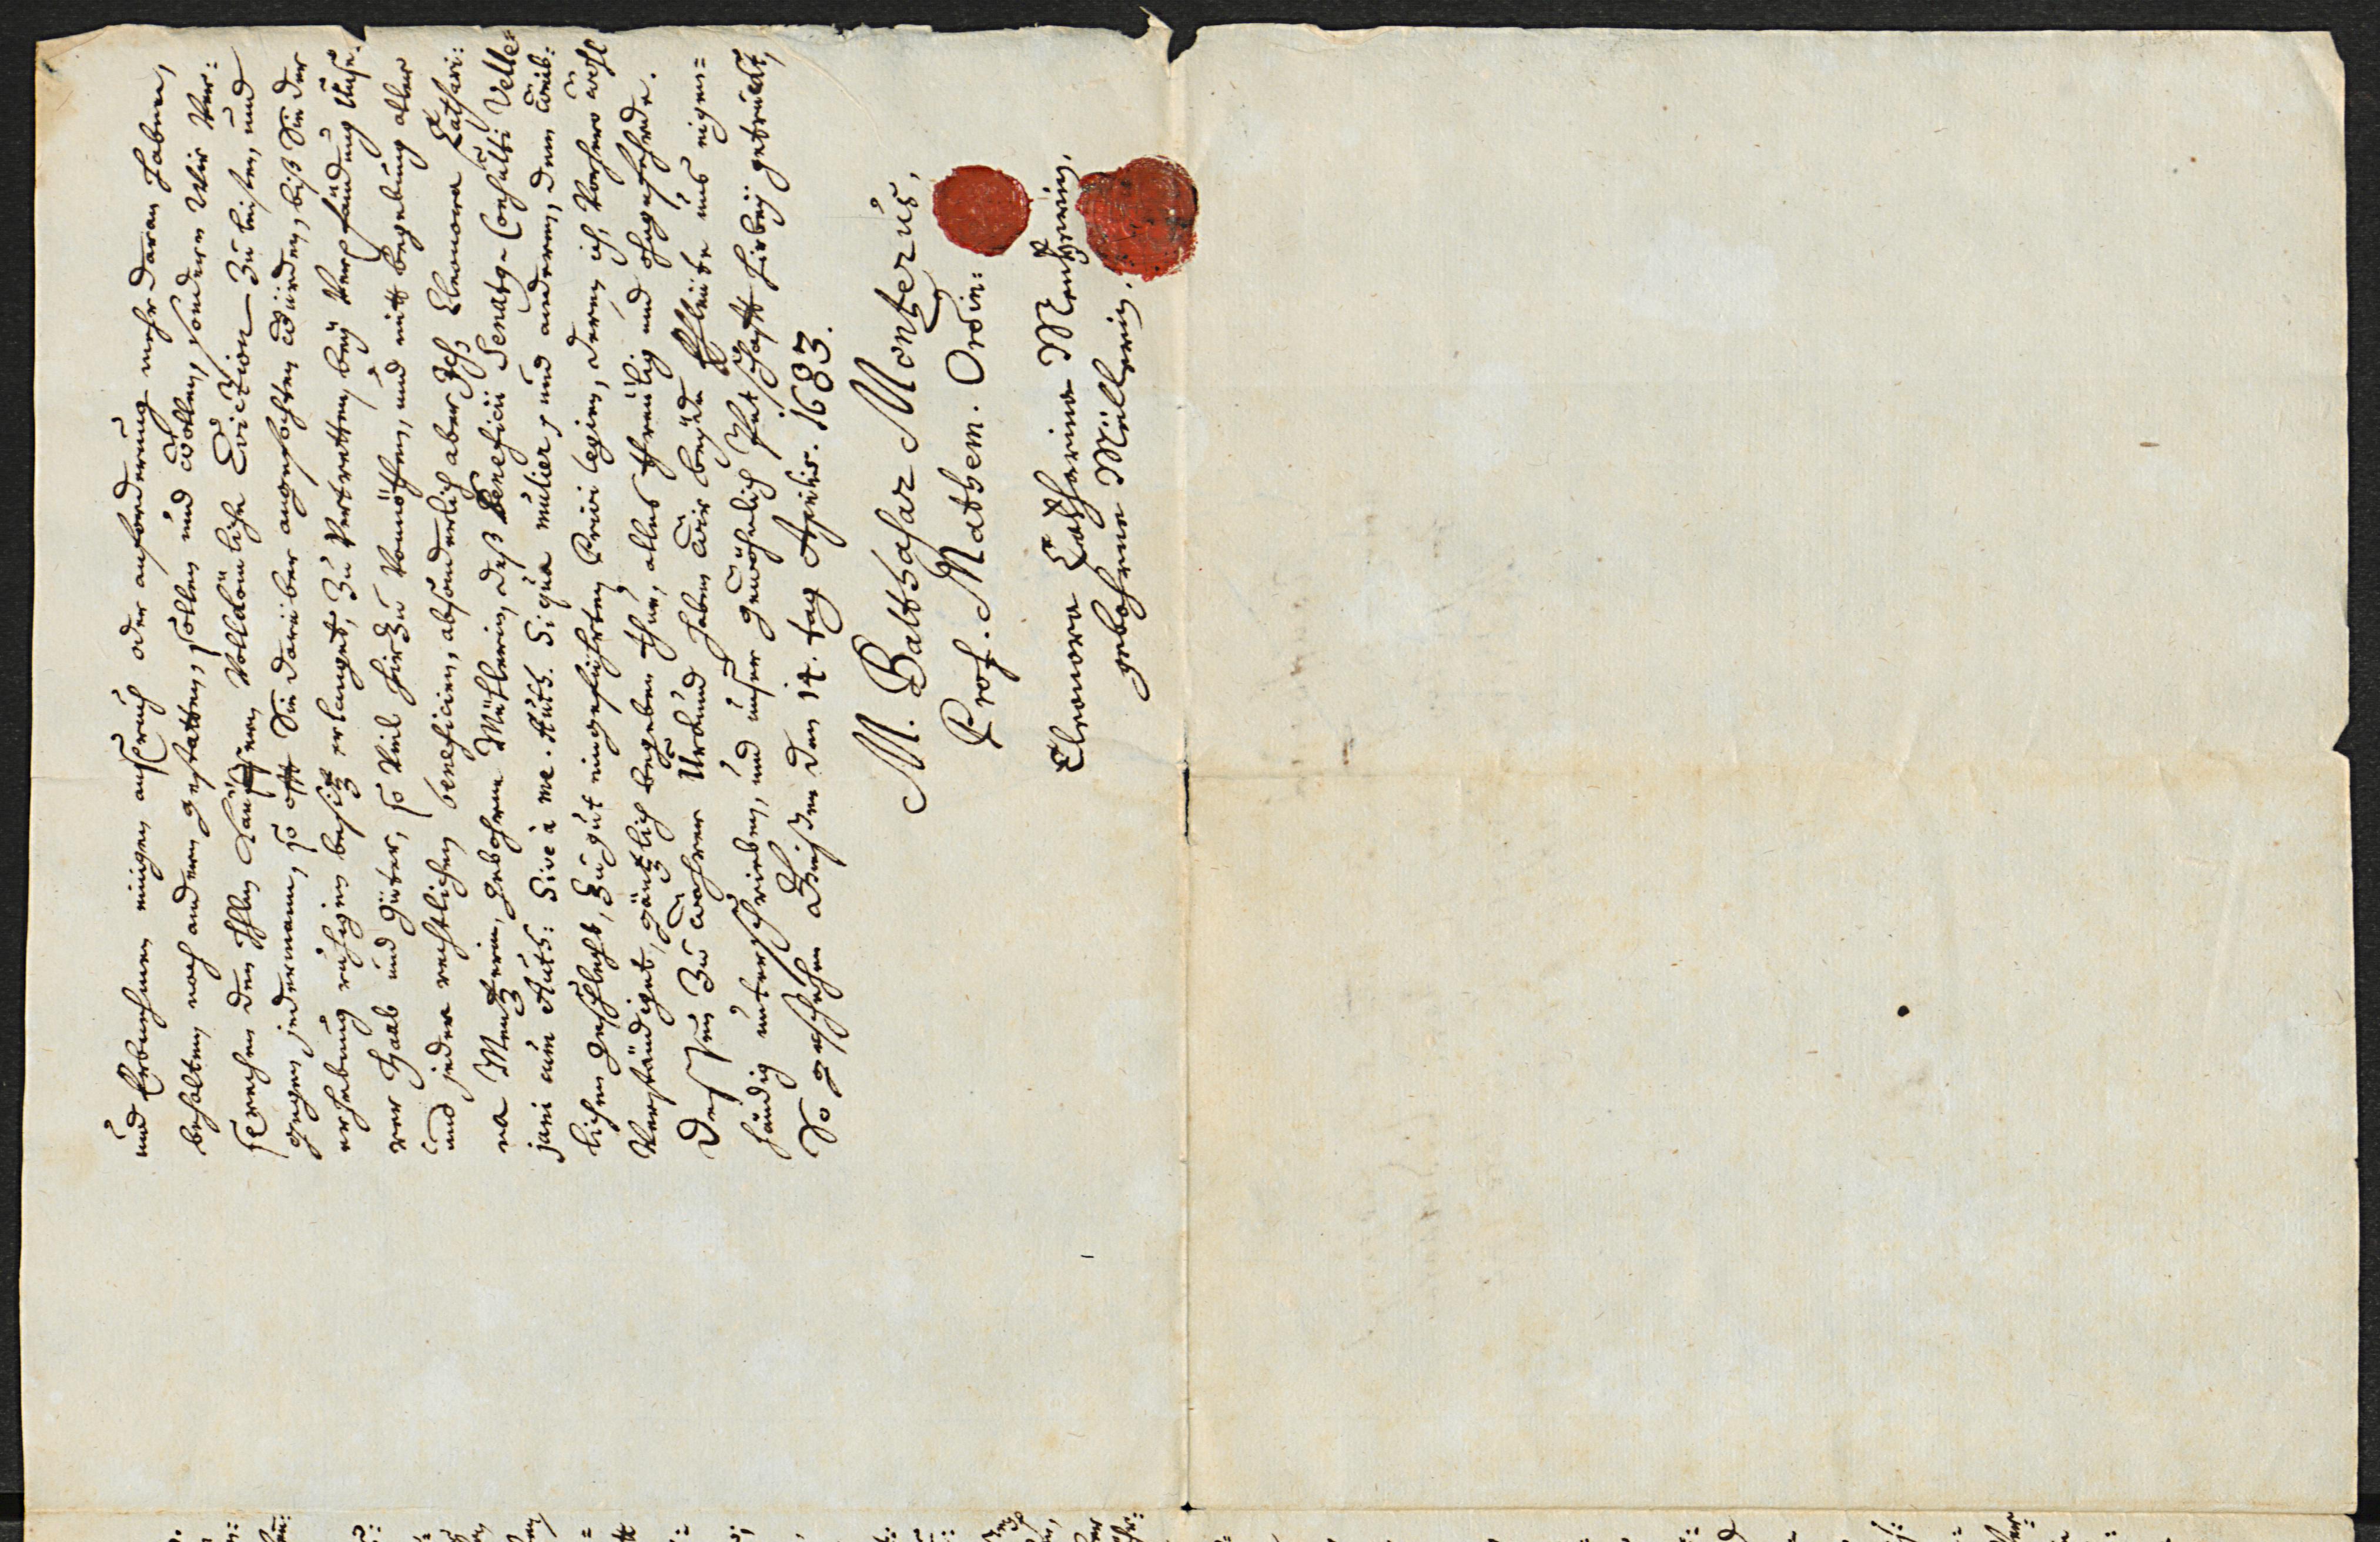 und Erbnehmen einigen anspruch oder anforderung mehr daran haben,
behalten noch andern gestatten, sollen und wollen, sondern Wir Ver:
sprechen den Hhln Käuffern Vollkömliche Eviction Zu leisten, und
gegen jederman, so offt Sie darüber angefochten würden, biß Sie der
erhebung ruhigen besitz erlanget, Zu Vertretten, bey Verpfändung Unse-
rer Haab und Güter, so Viel hirzu Vonnöthen, und mitt begebung aller
und jeder rechtlichen beneficien, absonderlich aber Ich Eleonora Cathari:
na Mentzerin, gebohrne Müllerin, deß Beneficii Senatq- Consulti Velle
jani cum Auth: Sive à me. Auth. Si qua mulier, und anderen, dem Weib:
lichen geschlecht, Zu gut eingeführten Privilegien, deren ich Vorhero wohl
Verständiget, gäntzlich begeben thue, alles threulig und ohngefehrde.
Dessen Zu wahrer Urkund haben wir beyde Ehleute uns eigen=
händig unterschrieben, und unser gewöhnlich Petschafft hirbey getruckt,
So geschehen Giessen den 14. tag Aprilis. 1683.
M. Balthasar Mentzerus,
Prof. Mathem. Ordin:
Eleonora Catharina Mentzerin,
gebohrne Müllerin.